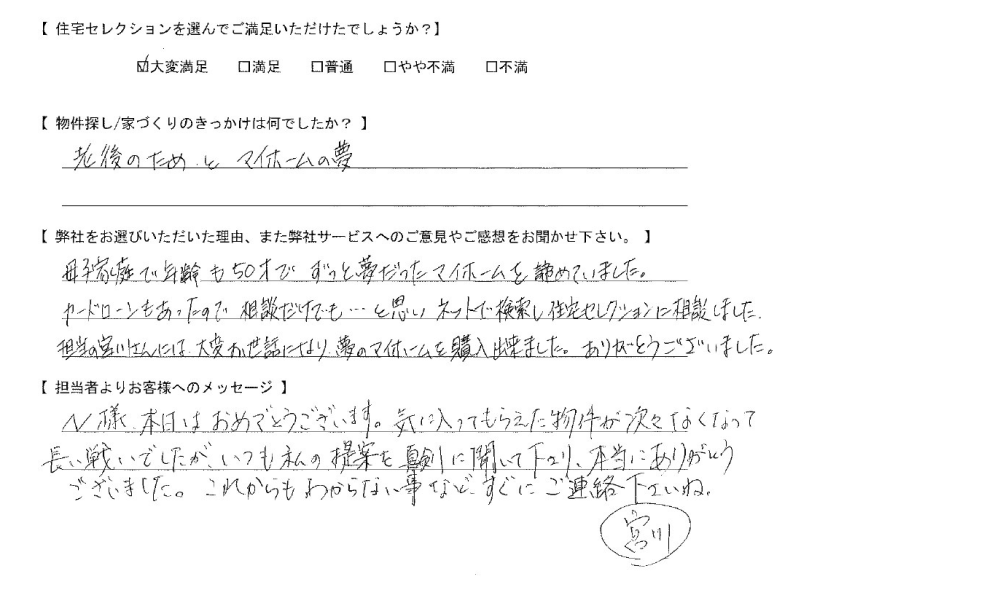 【 住宅セレクションを選んでご満足いただけたでしょうか?】
☑大変満足 □満足 □普通 □やや不満 □不満
【 物件探し/家づくりのきっかけは何でしたか? 】
老後のため と マイホームの夢
【 弊社をお選びいただいた理由、また弊社サービスへのご意見やご感想をお聞かせ下さい。 】
母子家庭で年齢も50才で ずっと夢だったマイホームを諦めていました。
カードローンもあったので 相談だけでも…と思い ネットで検索し住宅セレクションに相談しました。
担当の宮川さんには、大変お世話になり、夢のマイホームを購入出来ました。ありがとうございました。
【 担当者よりお客様へのメッセージ 】
N様、本日はおめでとうございます。気に入ってもらえた物件が次々なくなって
長い戦いでしたが、いつも私の提案を真剣に聞いて下さり、本当にありがとう
ございました。これからもわからない事など、すぐにご連絡下さいね。
宮川